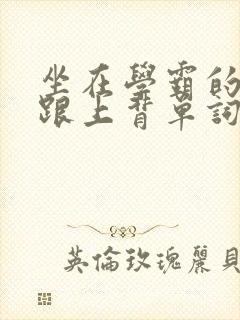 坐在學霸的
跟上背單詞
英倫玫瑰麗貝